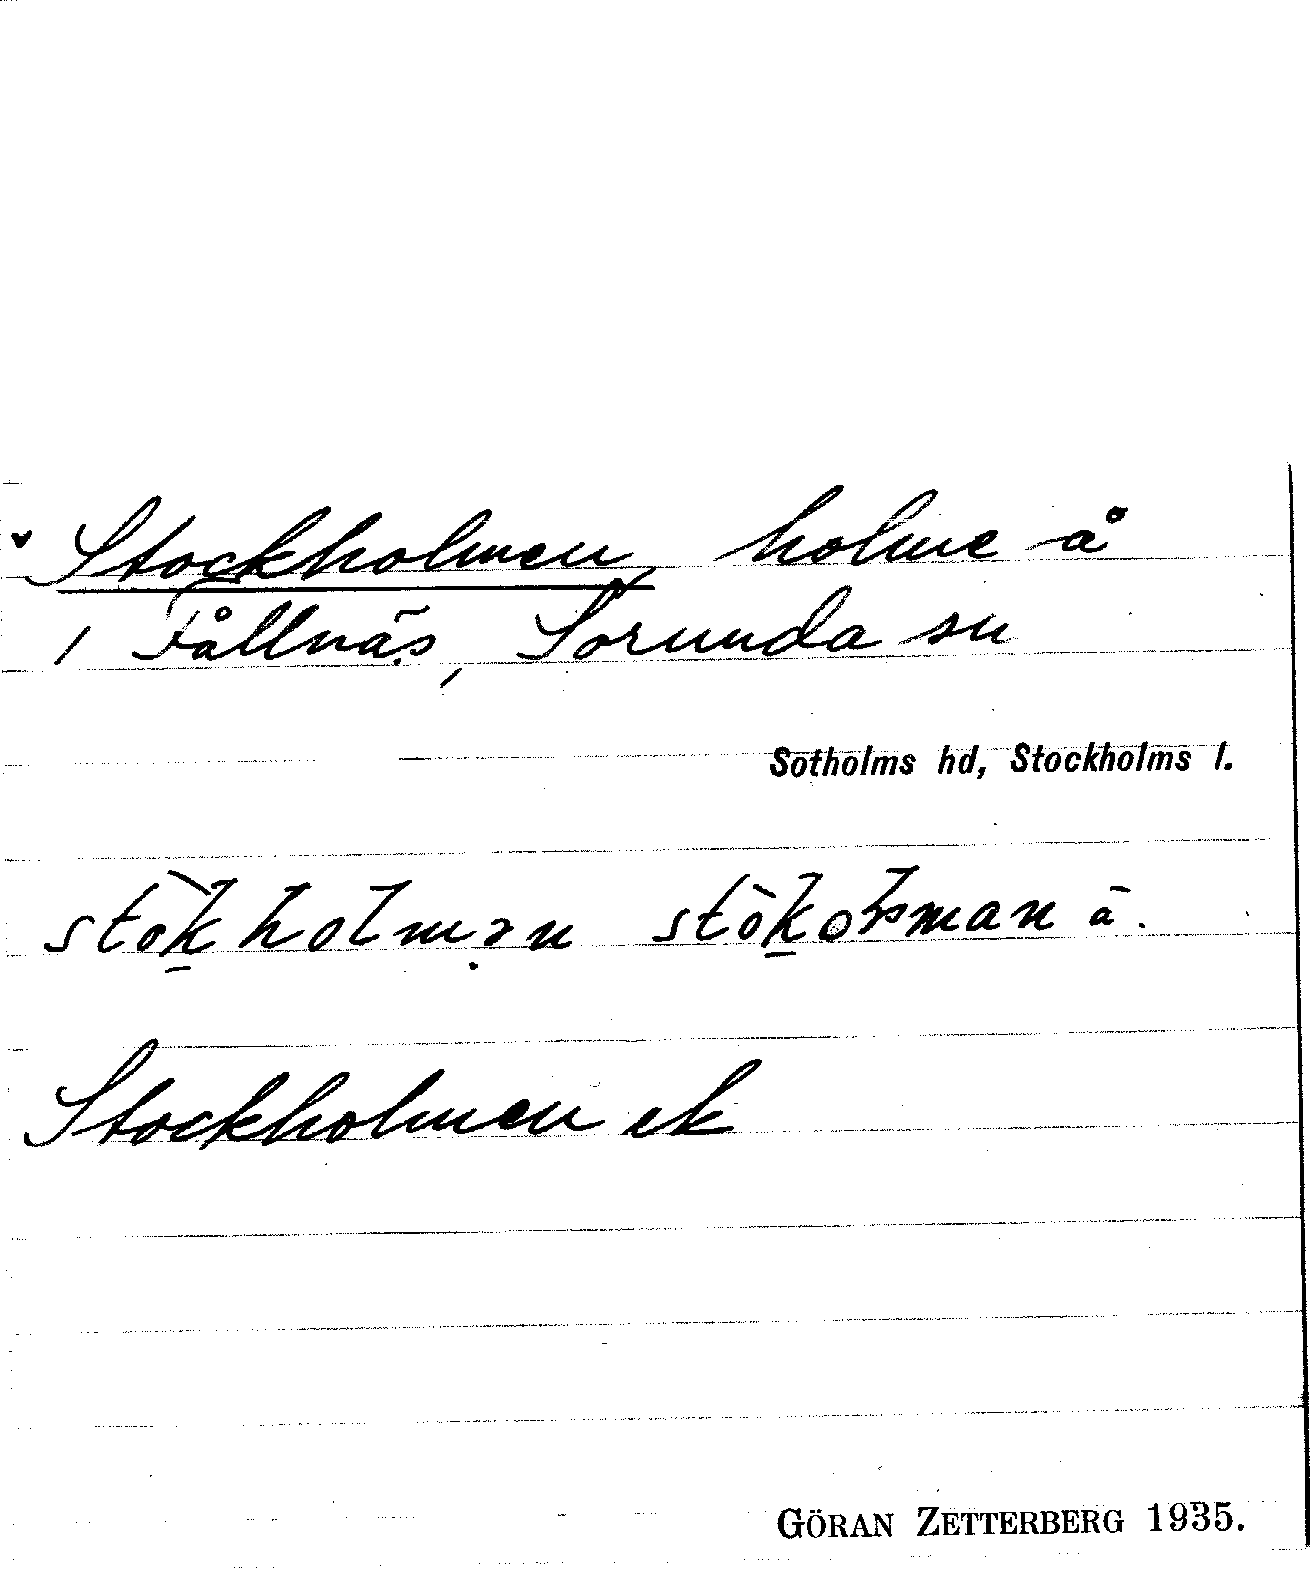 Stockholmen, holme å
1 Fållnäs, Sorunda sn
Sotholms hd, Stockholms l.
Stockholmen ek
GÖRAN ZETTERBERG 1935.